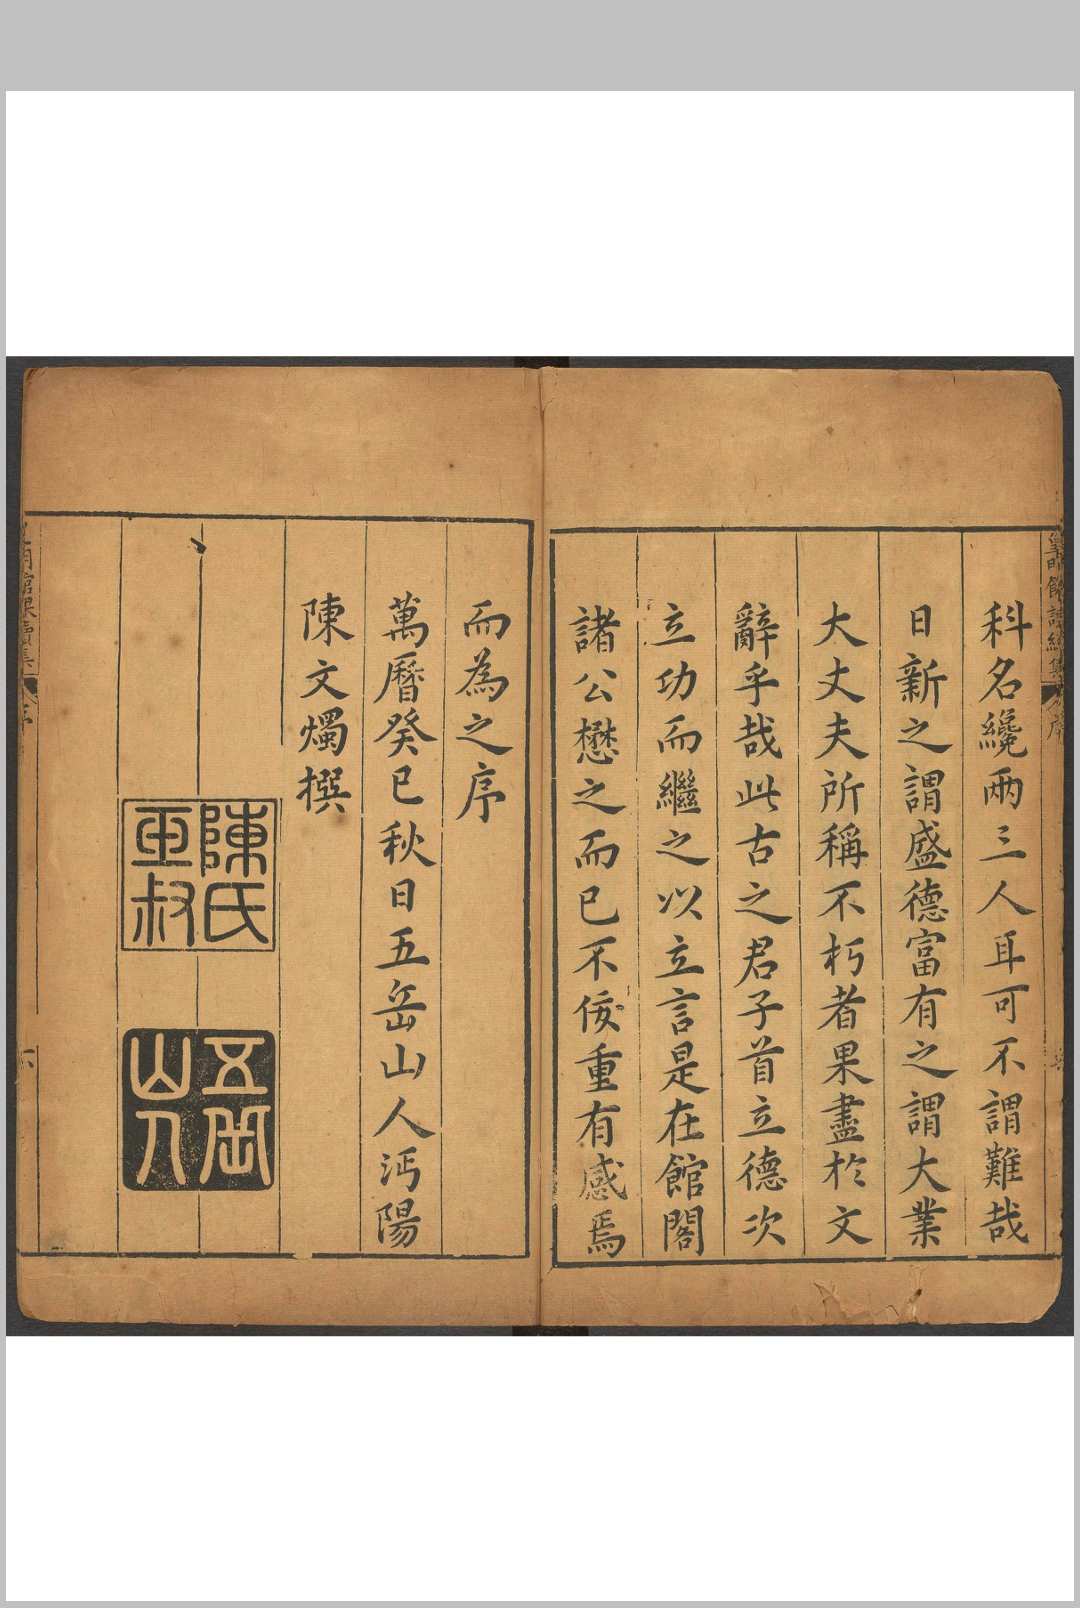 科名纔兩三人耳可不謂難哉
日新之謂盛德富有之謂大業
大丈夫所稱不朽者果盡於文
辭乎哉此古之君子首立德次
立功而繼之以立言是在館閣
諸公懋之而已不佞重有感焉
而為之序
萬曆癸巳秋日五岳山人沔陽
陳文燭撰
陳氏
玉叔
五岳
山人